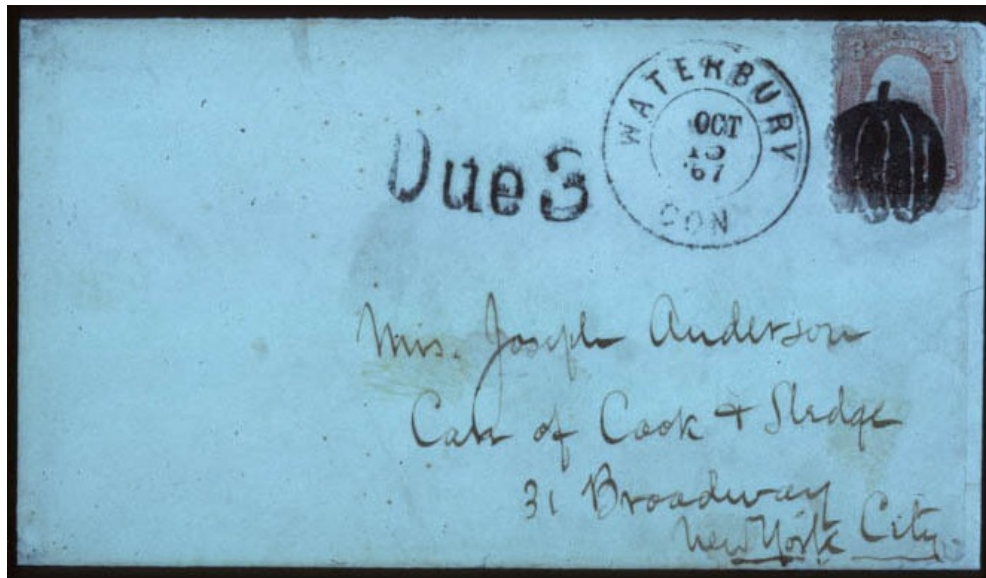 3 3
WATERBURY
OCT
'67
CON
Due 3
Mrs. Joseph Anderson
Care of Cook + Sledge
31 Broadway
New York City.